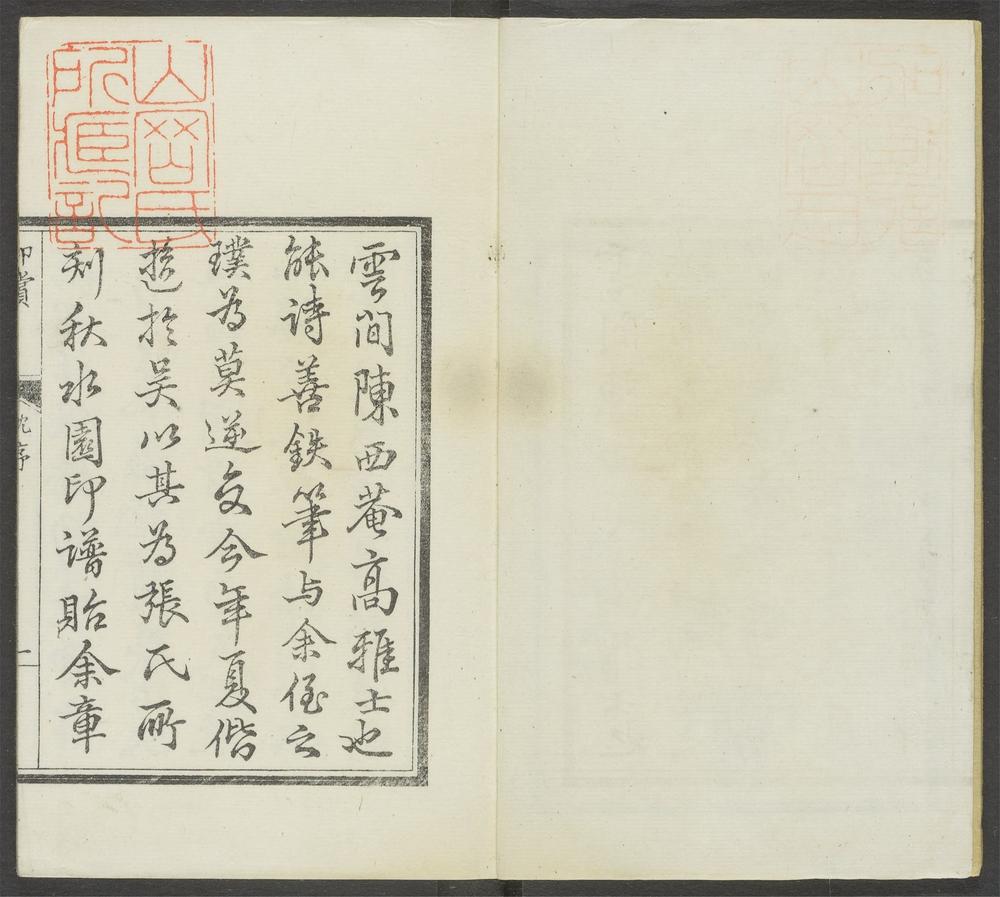 雲間陳西菴高雅士也
能诗善鉄筆与余侄云
璞为莫逆交今年夏偕
遊於吴以其为張氏所
刻秋水園印譜貽余章
印賞
沈序
一